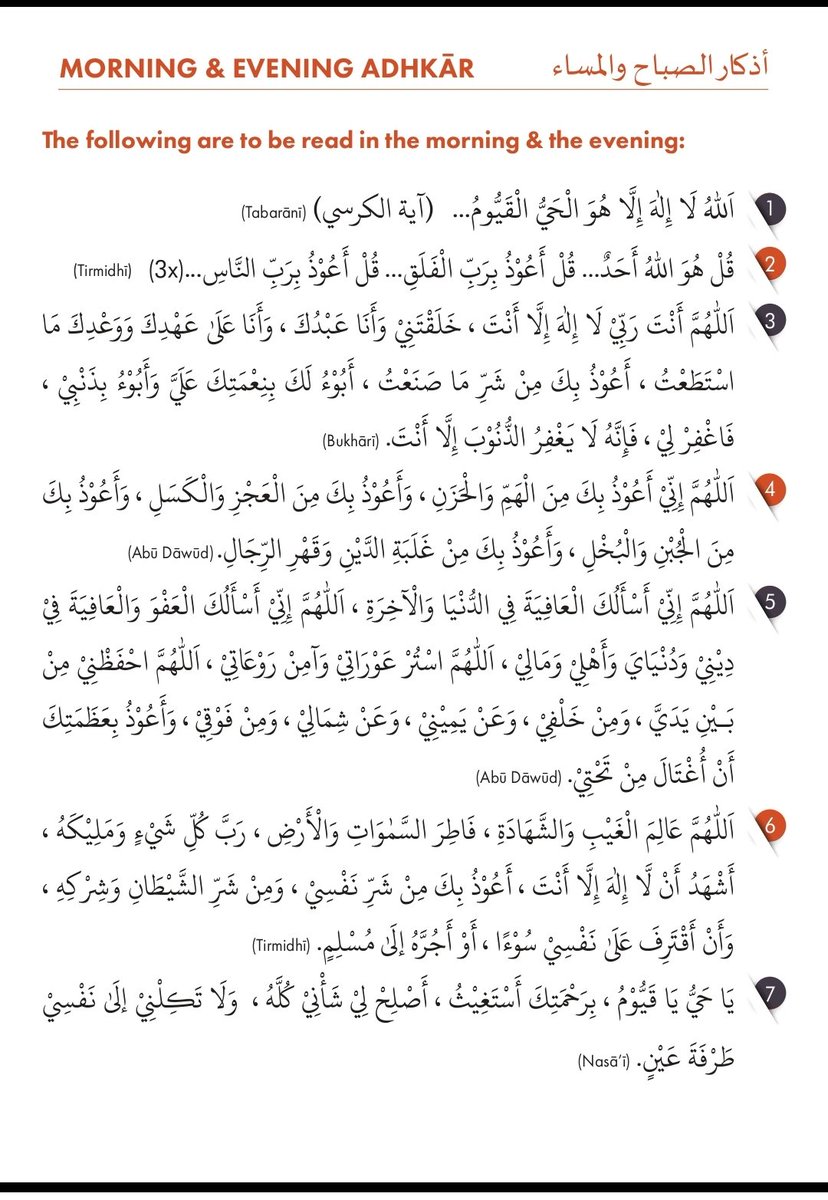 MORNING & EVENING ADHKĀR أذكار الصباح والمساء
The following are to be read in the morning & the evening:
1 اَللهُ لَا إِلٰهَ إِلَّا هُوَ الْحَيُّ الْقَيُّومُ... (آية الكرسي) (Tabarānī)
2 قُلْ هُوَ اللهُ أَحَدٌ... قُلْ أَعُوْذُ بِرَبِّ الْفَلَقِ... قُلْ أَعُوْذُ بِرَبِّ النَّاسِ...(3x) (Tirmidhī)
3 اَللّٰهُمَّ أَنْتَ رَبِّيْ لَا إِلٰهَ إِلَّا أَنْتَ ، خَلَقْتَنِيْ وَأَنَا عَبْدُكَ ، وَأَنَا عَلَىٰ عَهْدِكَ وَوَعْدِكَ مَا
اسْتَطَعْتُ ، أَعُوْذُ بِكَ مِنْ شَرِّ مَا صَنَعْتُ ، أَبُوْءُ لَكَ بِنِعْمَتِكَ عَلَيَّ وَأَبُوْءُ بِذَنْبِيْ ،
فَاغْفِرْ لِيْ ، فَإِنَّهُ لَا يَغْفِرُ الذُّنُوْبَ إِلَّا أَنْتَ. (Bukhārī)
4 اَللّٰهُمَّ إِنِّيْ أَعُوْذُ بِكَ مِنَ الْهَمِّ وَالْحَزَنِ ، وَأَعُوْذُ بِكَ مِنَ الْعَجْزِ وَالْكَسَلِ ، وَأَعُوْذُ بِكَ
مِنَ الْجُبْنِ وَالْبُخْلِ ، وَأَعُوْذُ بِكَ مِنْ غَلَبَةِ الدَّيْنِ وَقَهْرِ الرِّجَالِ. (Abū Dāwūd)
5 اَللّٰهُمَّ إِنِّيْ أَسْأَلُكَ الْعَافِيَةَ فِي الدُّنْيَا وَالْآخِرَةِ ، اَللّٰهُمَّ إِنِّيْ أَسْأَلُكَ الْعَفْوَ وَالْعَافِيَةَ فِيْ
دِيْنِيْ وَدُنْيَايَ وَأَهْلِيْ وَمَالِيْ ، اَللّٰهُمَّ اسْتُرْ عَوْرَاتِيْ وَآمِنْ رَوْعَاتِيْ ، اَللّٰهُمَّ احْفَظْنِيْ مِنْ
بَيْنِ يَدَيَّ ، وَمِنْ خَلْفِيْ ، وَعَنْ يَمِيْنِيْ ، وَعَنْ شِمَالِيْ ، وَمِنْ فَوْقِيْ ، وَأَعُوْذُ بِعَظَمَتِكَ
أَنْ أُغْتَالَ مِنْ تَحْتِيْ. (Abū Dāwūd)
6 اَللّٰهُمَّ عَالِمَ الْغَيْبِ وَالشَّهَادَةِ ، فَاطِرَ السَّمٰوَاتِ وَالْأَرْضِ ، رَبَّ كُلِّ شَيْءٍ وَمَلِيْكَهُ ،
أَشْهَدُ أَنْ لَّا إِلٰهَ إِلَّا أَنْتَ ، أَعُوْذُ بِكَ مِنْ شَرِّ نَفْسِيْ ، وَمِنْ شَرِّ الشَّيْطَانِ وَشِرْكِهِ ،
وَأَنْ أَقْتَرِفَ عَلَىٰ نَفْسِيْ سُوْءًا ، أَوْ أَجُرَّهُ إِلَىٰ مُسْلِمٍ. (Tirmidhī)
7 يَا حَيُّ يَا قَيُّوْمُ ، بِرَحْمَتِكَ أَسْتَغِيْثُ ، أَصْلِحْ لِيْ شَأْنِيْ كُلَّهُ ، وَلَا تَكِلْنِيْ إِلَىٰ نَفْسِيْ
طَرْفَةَ عَيْنٍ. (Nasā'ī)